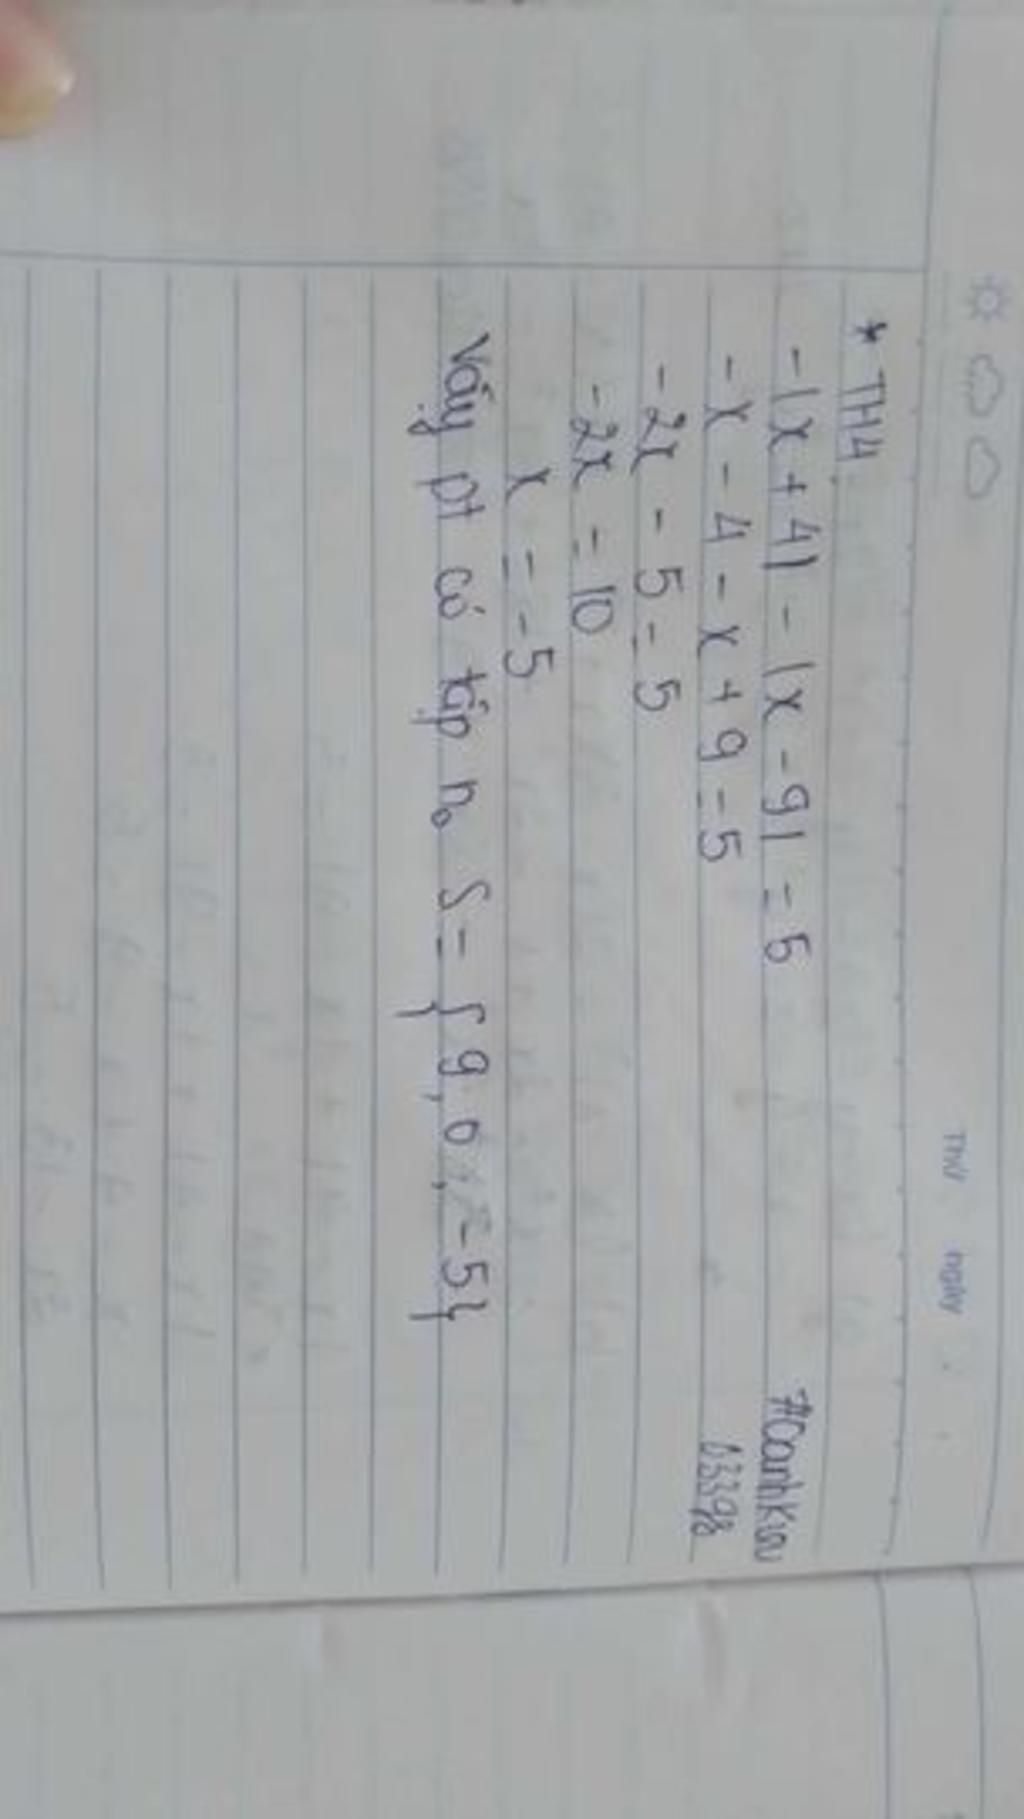 Thứ ngày
* TH4
-|x + 4| - |x - 9| = 5
-x - 4 - x + 9 = 5
-2x - 5 = 5
-2x = 10
x = -5
Vậy pt có tập no S = { 9, 0, -5}